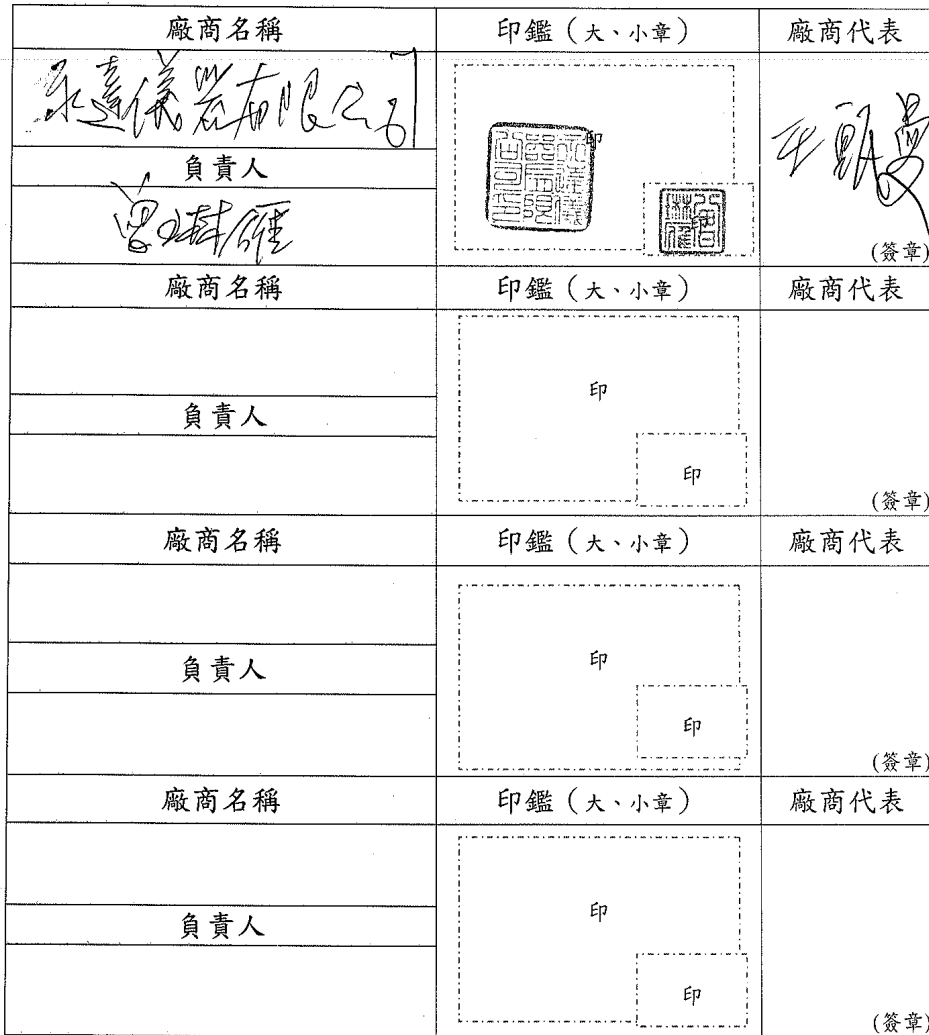 廠商名稱 印鑑（大、小章） 廠商代表
永達儀器有限公司
印
負責人
永達儀器有限公司印
(簽章)
廠商名稱 印鑑（大、小章） 廠商代表
印
負責人
印
(簽章)
廠商名稱 印鑑（大、小章） 廠商代表
印
負責人
印
(簽章)
廠商名稱 印鑑（大、小章） 廠商代表
印
負責人
印
(簽章)